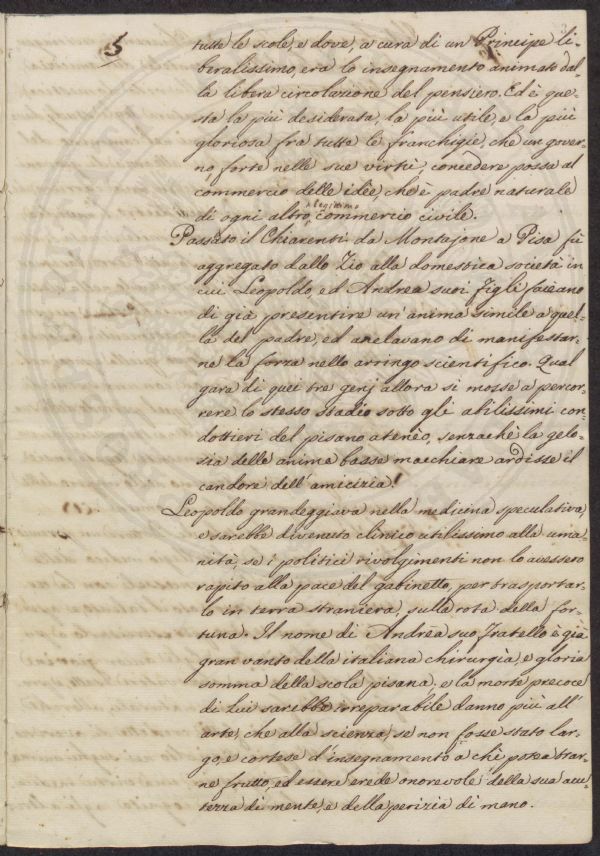 5
tutte le scole, e dove, a cura di un Principe li-
beralissimo, era lo insegnamento animato dal-
la libera circolazione del pensiero. Ed è que-
sta la più desiderata, la più utile, e la più
gloriosa fra tutte le franchigie, che un gover-
no, forte nelle sue virtù, concedere possa al
commercio delle idèe, che è padre naturale
legittimo
di ogni altro, commercio civile.
Passato il Chiarenti da Montajone a Pisa fù
aggregato dallo Zio alla domestica società in
cui Leopoldo, ed Andrea suoi figli faceano
di già presentire un'anima simile a quel-
la del padre, ed anelavano di manifestar-
ne la forza nello arringo scientifico. Qual
gara di quei tre genj allora si mosse a percor-
rere lo stesso stadio sotto gli abilissimi con-
dottieri del pisano atenèo, senzachè la gelo-
sia delle anime basse macchiare ardisse il
candore dell'amicizia!
Leopoldo grandeggiava nella medicina speculativa,
e sarebbe divenuto clinico utilissimo alla uma-
nità, se i politici rivolgimenti non lo avessero
rapito alla pace del gabinetto, per trasportar-
lo in terra straniera, sulla rota della for-
tuna. Il nome di Andrea suo Fratello è già
gran vanto della italiana chirurgìa, e gloria
somma della scola pisana; e la morte precoce
di Lui sarebbe irreparabile danno più all'
arte, che alla scienza, se non fosse stato lar-
go, e cortese d'insegnamento a chi potea trar-
ne frutto, ed essere erede onorevole della sua acu-
tezza di mente, e della perizia di mano.